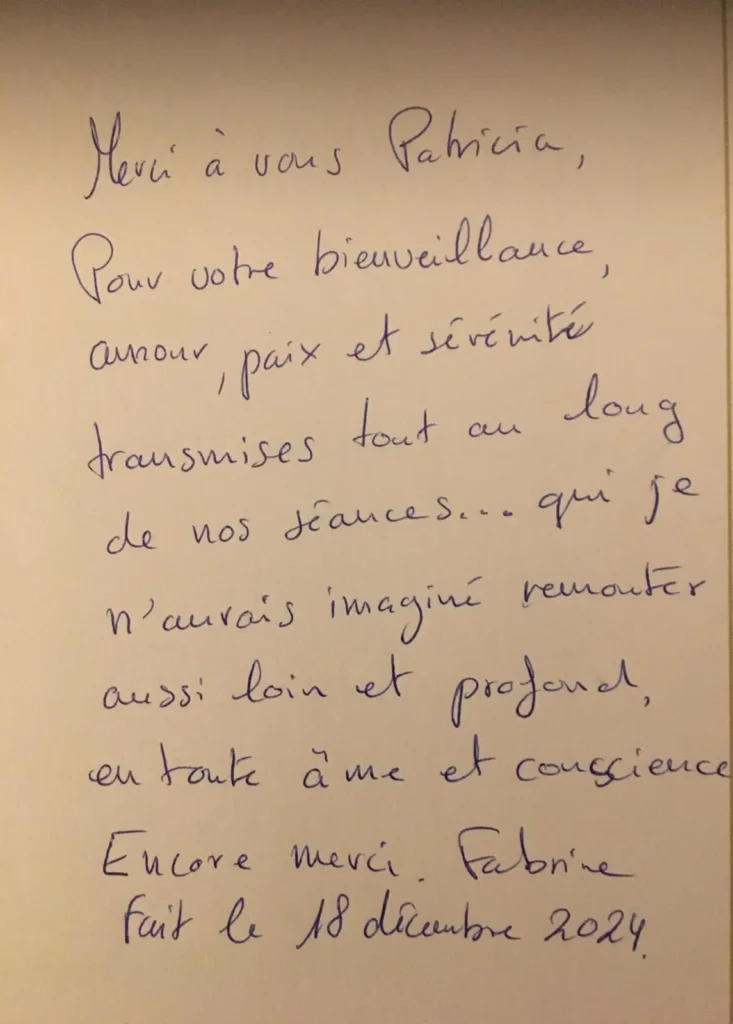 Merci à vous Patricia,
Pour votre bienveillance,
amour, paix et sérénité
transmises tout au long
de nos séances... qui je
n'aurais imaginé remonter
aussi loin et profond,
en toute âme et conscience
Encore merci. Fabrine
Fait le 18 décembre 2024.